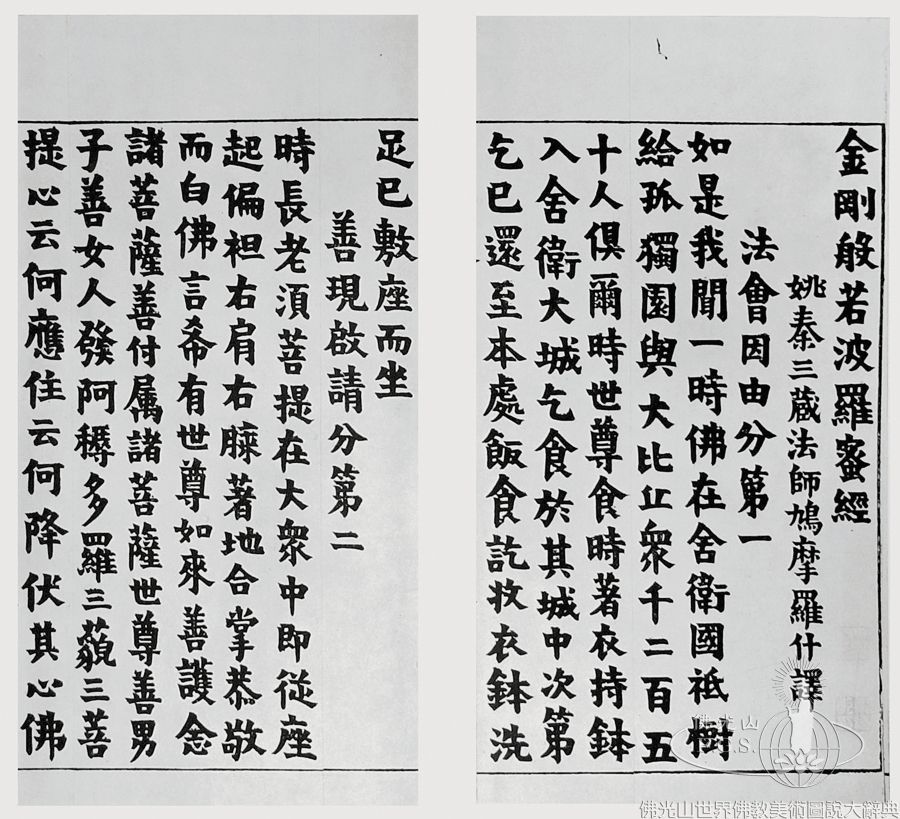 金剛般若波羅蜜經
姚秦三蔵法師鳩摩羅什譯
法會因由分第一
如是我聞一時佛在舍衛國祇樹
給孤獨園與大比丘衆千二百五
十人俱爾時世尊食時著衣持鉢
入舍衛大城乞食於其城中次第
乞已還至本處飯食訖收衣鉢洗
足已敷座而坐
善現啟請分第二
時長老須菩提在大衆中即從座
起偏袒右肩右膝著地合掌恭敬
而白佛言希有世尊如來善護念
諸菩薩善付属諸菩薩世尊善男
子善女人發阿耨多羅三藐三菩
提心云何應住云何降伏其心佛
佛光山
F.G.S.
佛光山世界佛教美術圖說大辭典